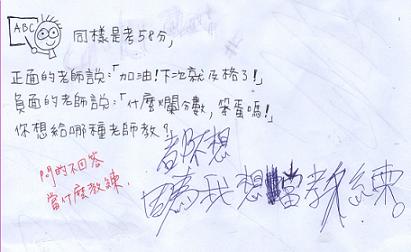 ABC
同樣是考58分,
正面的老師說:「加油!下次就及格了!」
負面的老師說:「什麼爛分數,笨蛋嗎!」
你想給哪種老師教?
都不想
因為我想當教練
問的不回答
當什麼教練.